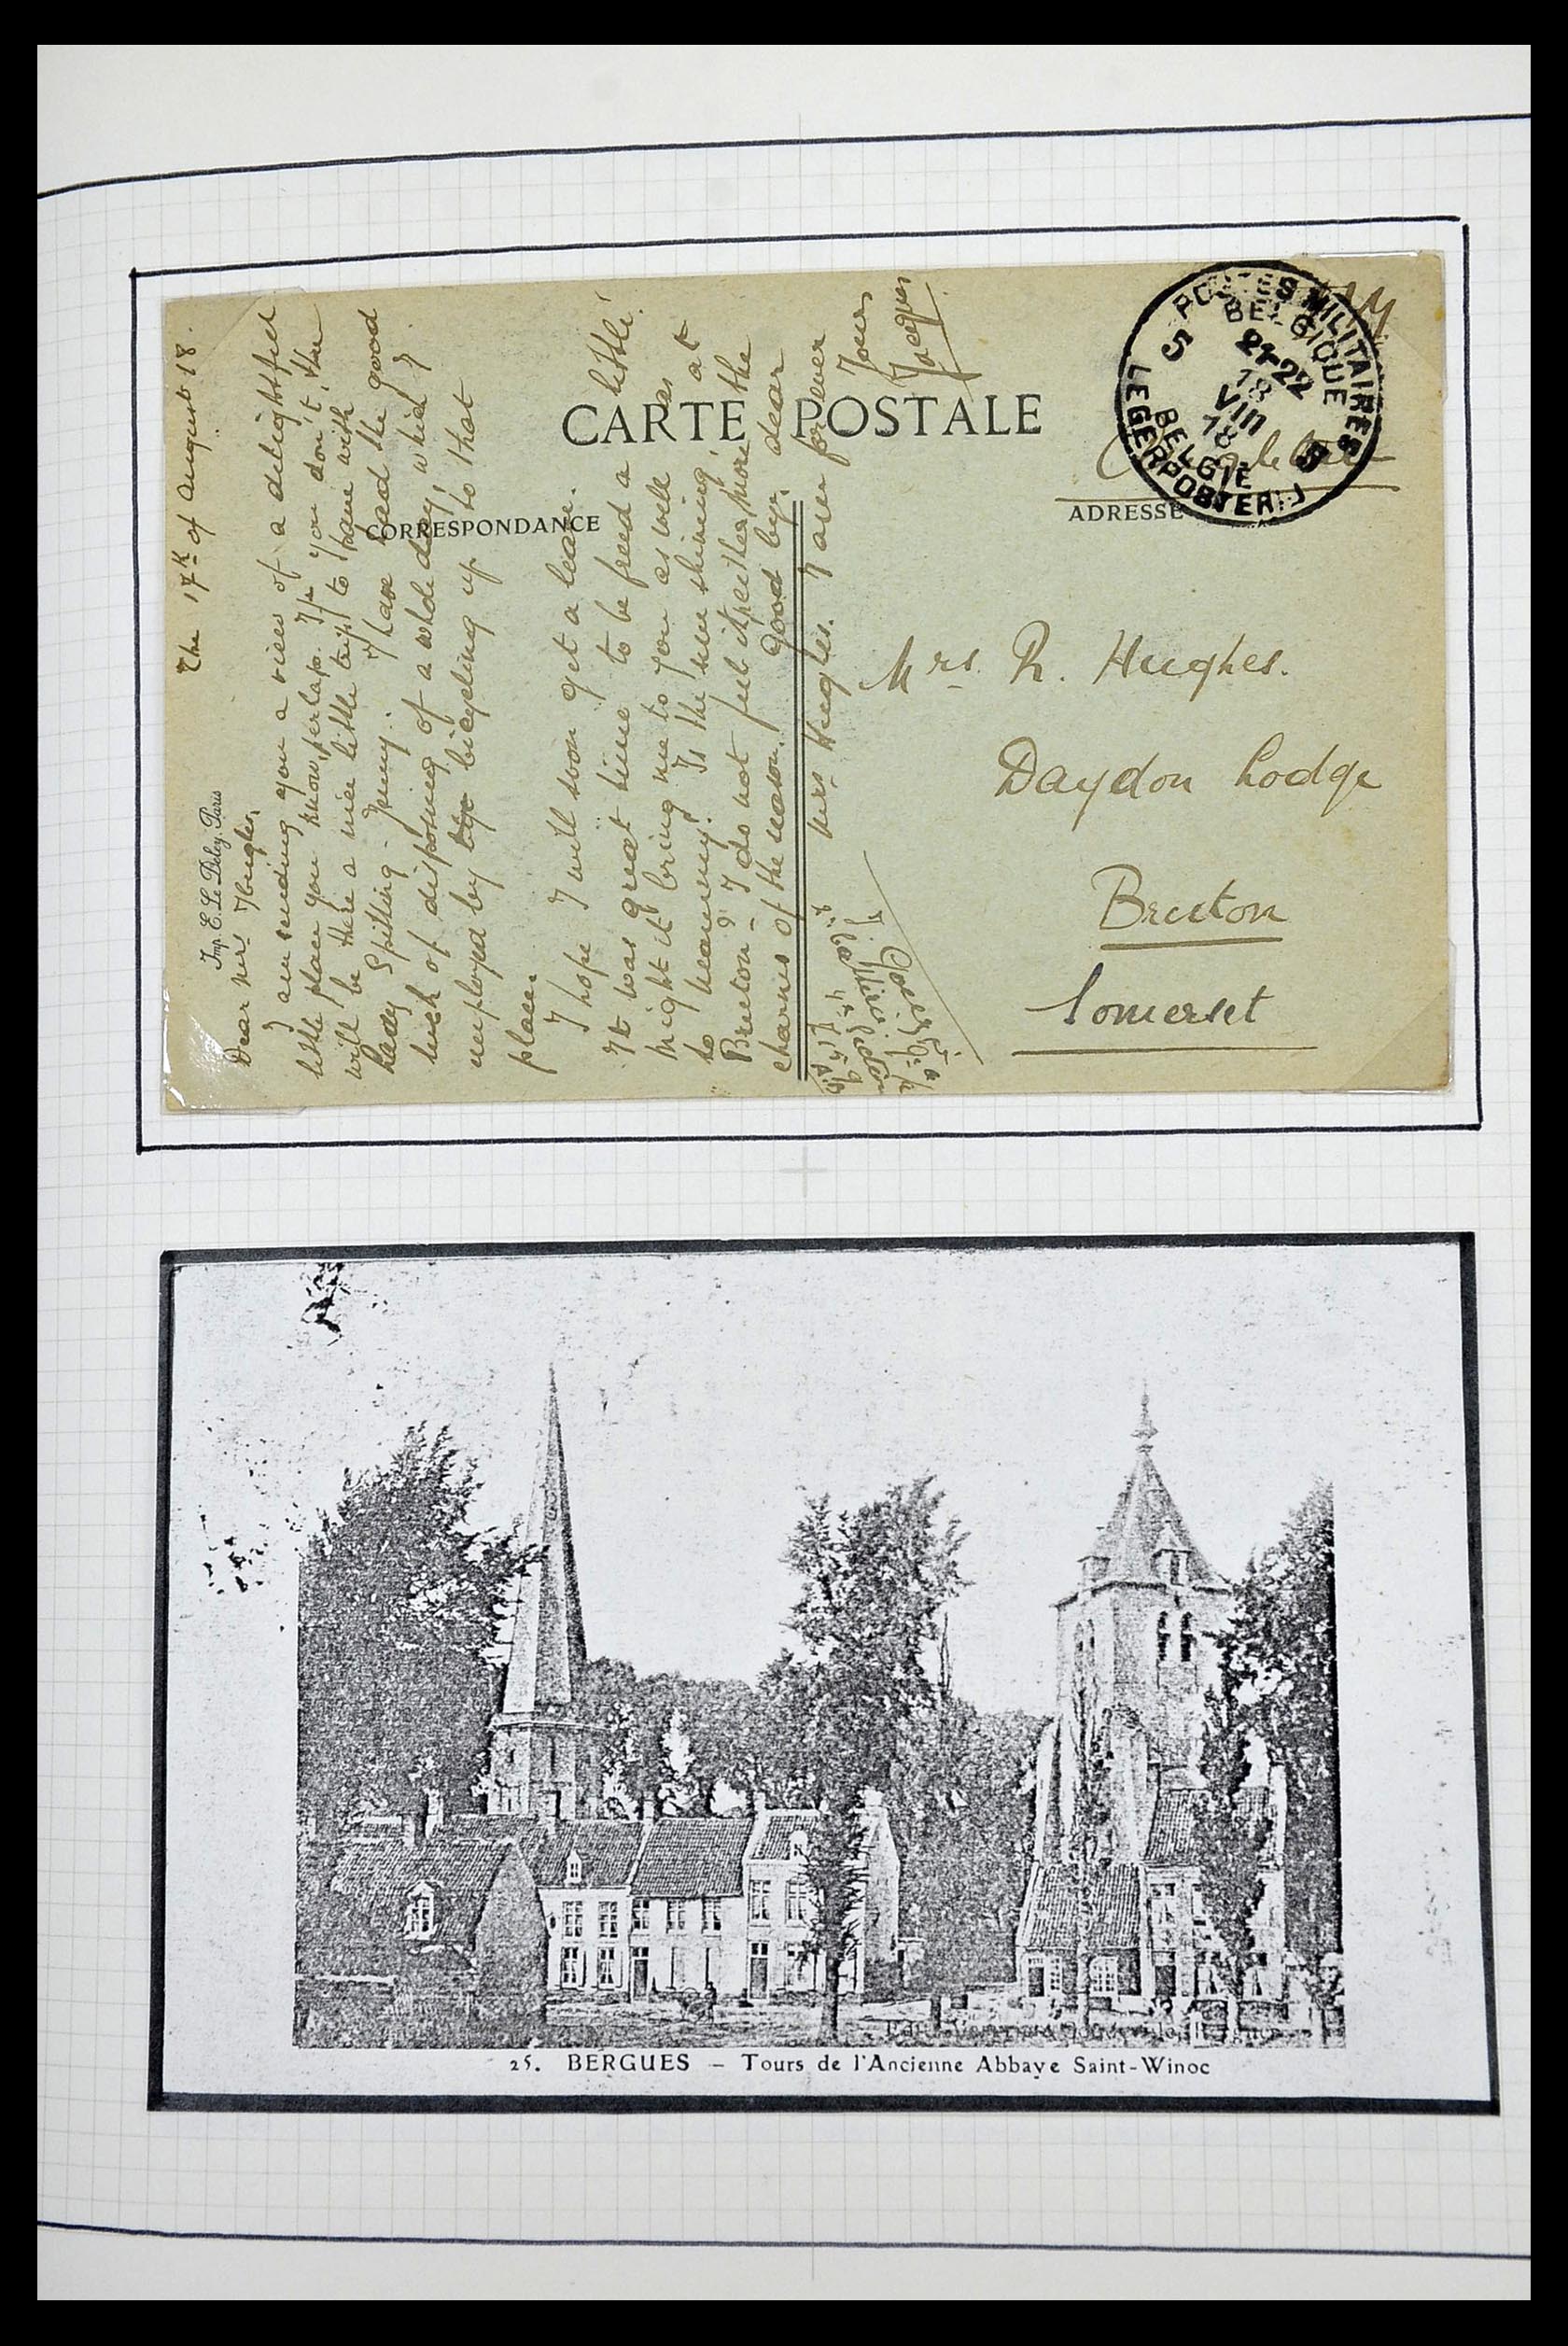 CARTE POSTALE
CORRESPONDANCE
ADRESSE
Imp. E. Le Deley, Paris
POSTES MILITAIRES
BELGIQUE
5
21-22
18
VIII
18
5
BELGIE
LEGERPOSTERIJ
The 17th of August 18.
Dear Mrs Hughes,
I am sending you a view of a delightful
little place you know, perhaps. If you don't, the
will be there a nice little trip to have with
Spitling - Jenny. I have had the good
luck of disposing of a whole day, which I
employed by bye bicycling up to that
place.
I hope I will soon get a leave.
It was great time to be freed a little!
Might it bring me to you as well as
to Mammy! Is the sun shining at
Bruton? I do not feel it here the more the
charms of the season. Good bye, dear
Mrs Hughes. I am for ever
Yours
Jacques
Mrs R. Hughes.
Daydon Lodge
Bruton
Somerset
25. BERGUES – Tours de l'Ancienne Abbaye Saint-Winoc